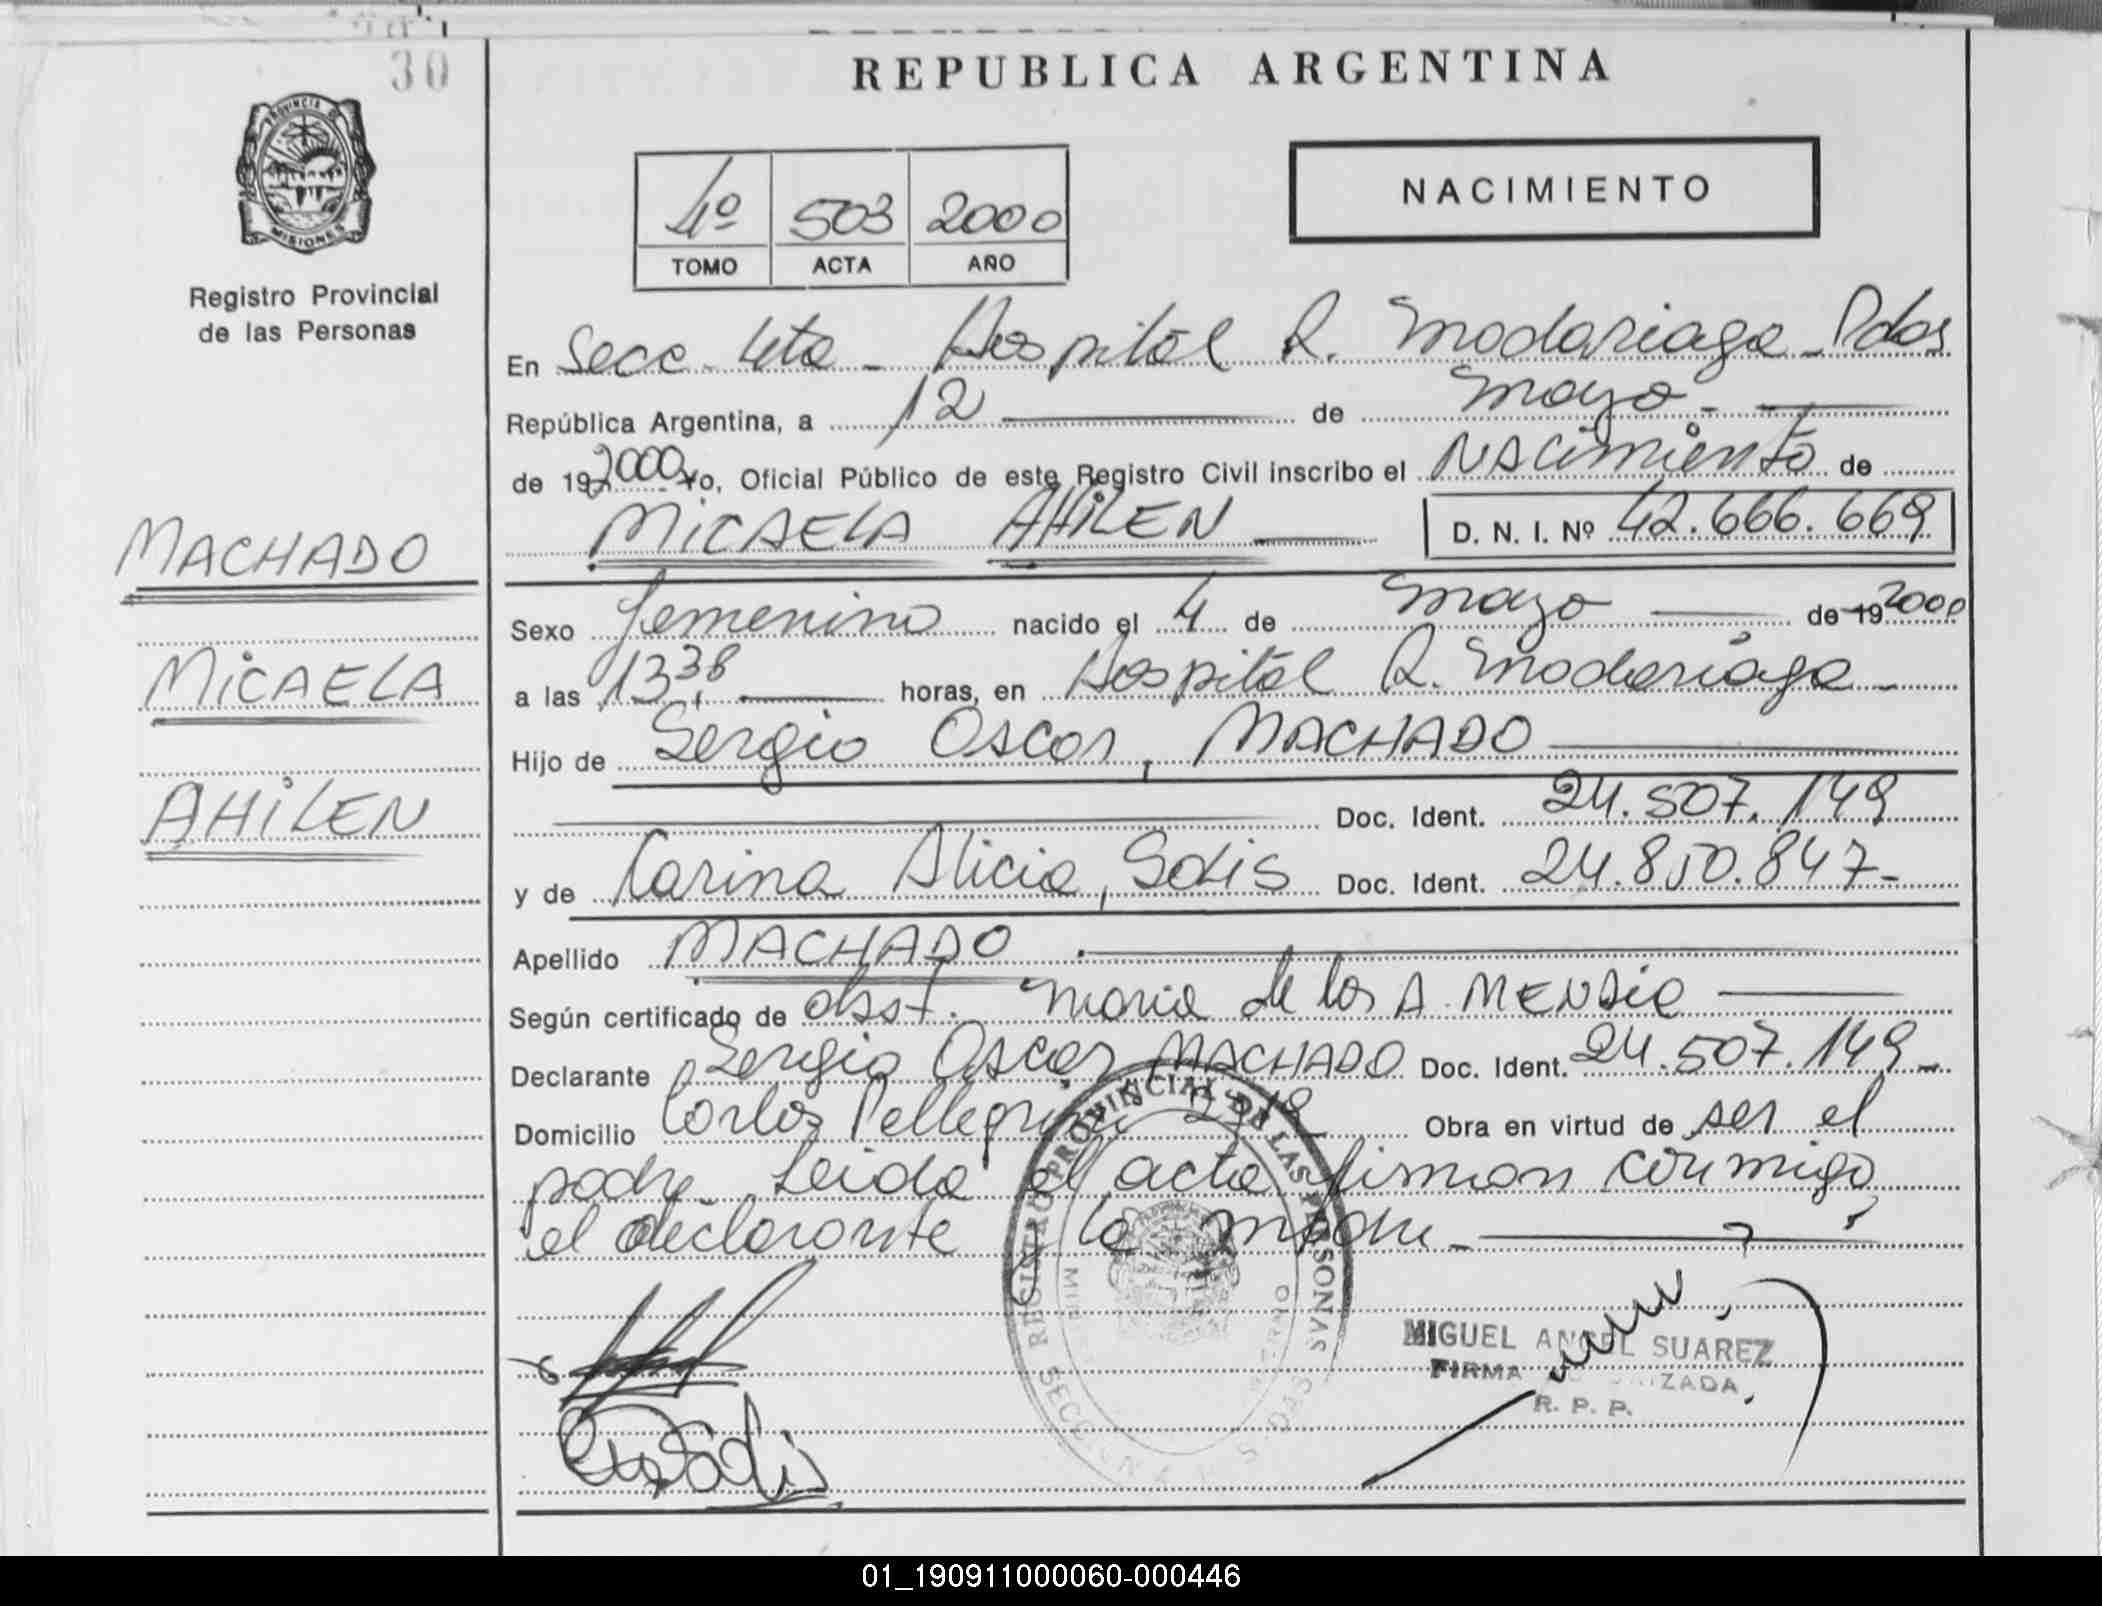 30
REPUBLICA ARGENTINA
PROVINCIA DE
MISIONES
Registro Provincial
de las Personas
4º 503 2000
TOMO ACTA AÑO
NACIMIENTO
En Secc. 4ta - Hospital R. Madariaga - Pdas
República Argentina, a 12 de Mayo -
de 19 2000 Yo, Oficial Público de este Registro Civil inscribo el NACimiento de
MiCAELA AHiLEN
D. N. I. Nº 42.666.669
MACHADO
MiCAELA
AHiLEN
Sexo femenino nacido el 4 de Mayo de 19 2000
a las 13,38 horas, en Hospital R. Madariaga -
Hijo de Sergio Oscar, MACHADO
Doc. Ident. 24.507.149
y de Karina Alicia, Solis Doc. Ident. 24.850.847-
Apellido MACHADO
Según certificado de obst. Maria de los A.
Declarante Sergio Oscar MACHADO Doc. Ident. 24.507.149-
Domicilio Carlos Pellegrini Obra en virtud de ser el
padre Leida el acta firman conmigo
el declarante y la madre -
REGISTRO PROVINCIAL DE LAS PERSONAS
MIGUEL ANGEL SUAREZ
FIRMA
R. P. P.
01_190911000060-000446